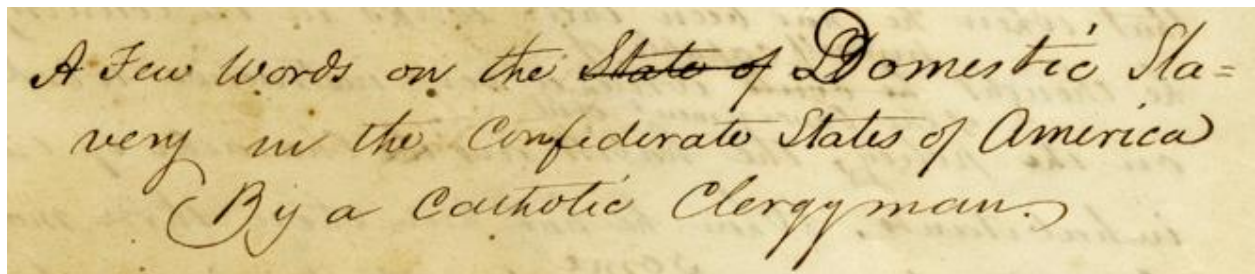 A Few Words on the State of Domestic Sla=
very in the Confederate States of America
(By a Catholic Clergyman.)